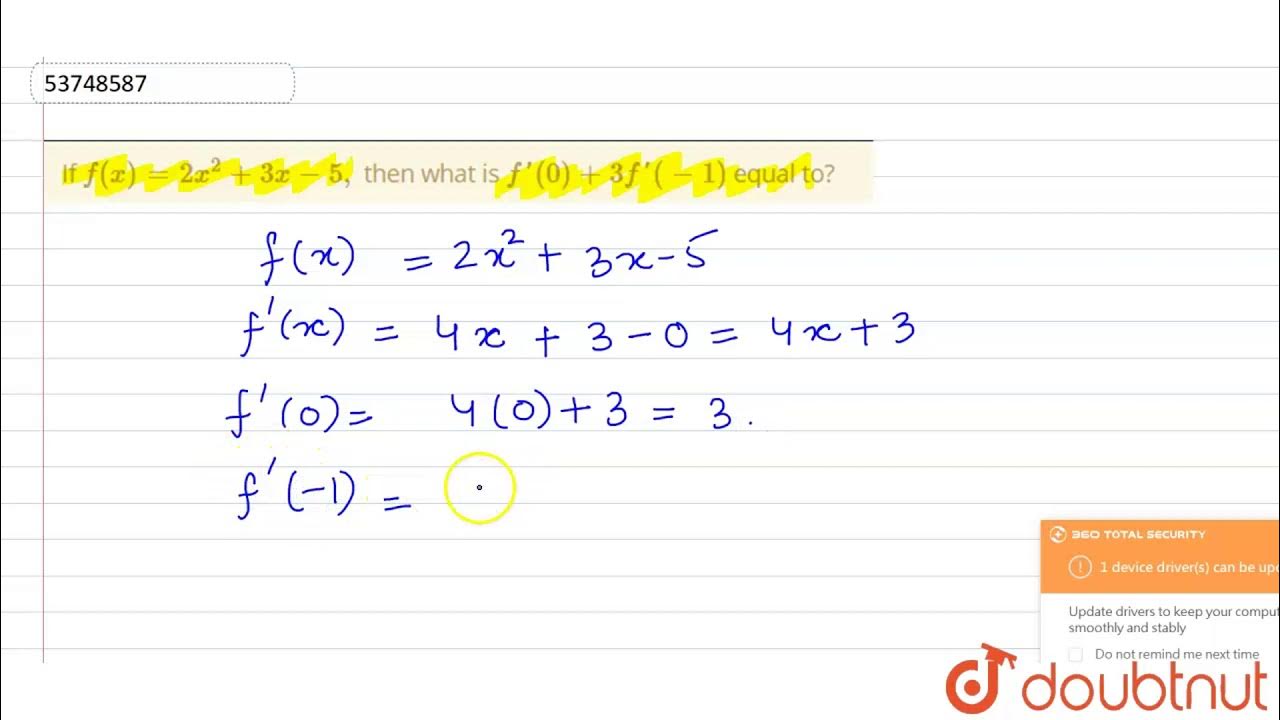 53748587
If f(x) = 2x² + 3x − 5, then what is f′(0) + 3f′(−1) equal to?
f(x) = 2x² + 3x − 5
f′(x) = 4x + 3 − 0 = 4x + 3
f′(0) = 4(0) + 3 = 3.
f′(−1) =
360 TOTAL SECURITY
! 1 device driver(s) can be upd
Update drivers to keep your comput
smoothly and stably
Do not remind me next time
doubtnut